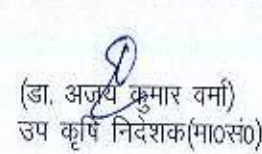 (डा. अजय कुमार वर्मा)
उप कृषि निदेशक(मा०सं०)